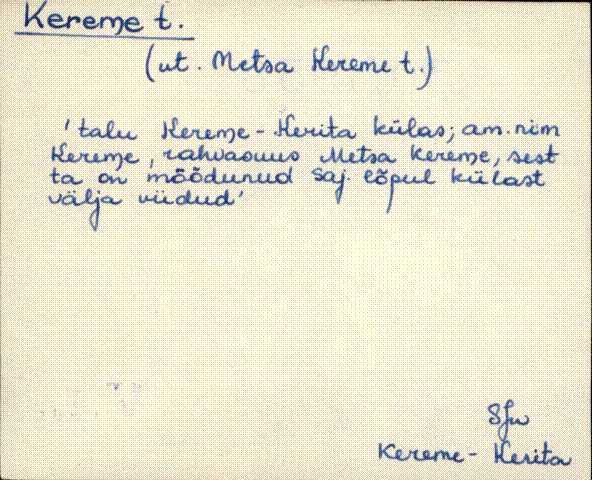 Kereme t.
(ut. Metsa Kereme t.)
'talu Kereme-Kerita külas; am. nim
Kereme, rahvasuus Metsa Kereme, sest
ta on möödunud saj. lõpul külast
välja viidud'
SJn
Kereme-Kerita